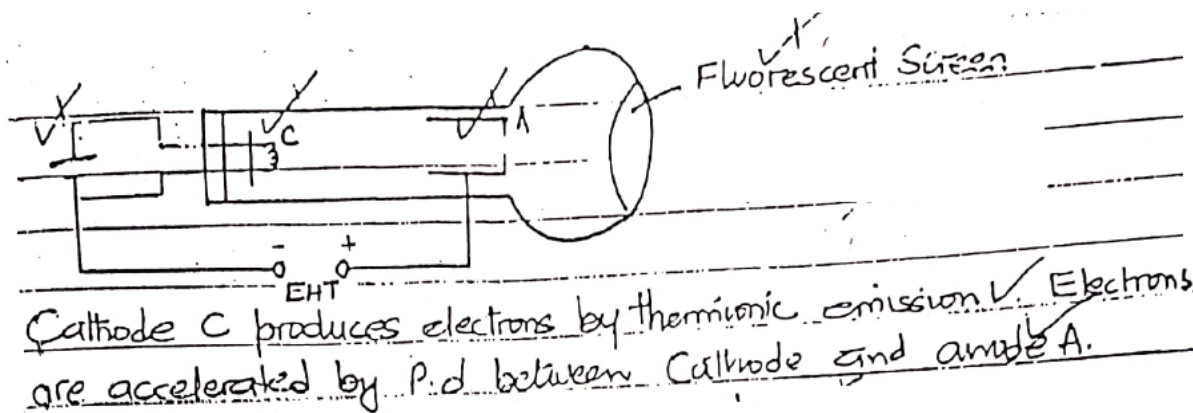 Fluorescent Screen
V
C
A
- +
EHT
Cathode C produces electrons by thermionic emission. Electrons
are accelerated by P.d between Cathode and anode A.